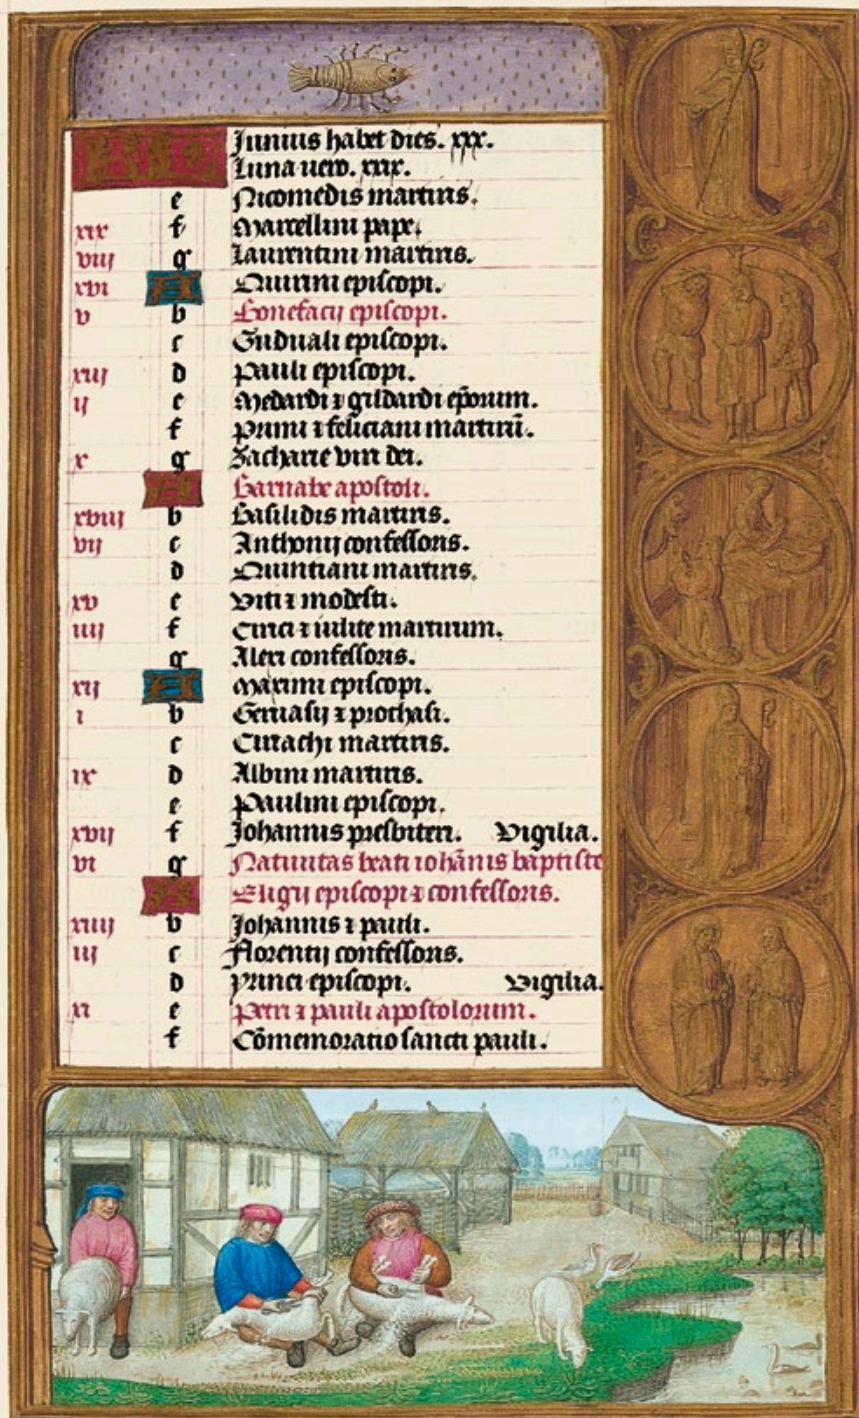 KL Junius habet dies. xxx.
Luna vero. xxix.
e Nicomedis martiris.
xix f Marcellini pape.
viij g Laurentini martiris.
xvi A Quirini episcopi.
v b Bonefacij episcopi.
c Guduali episcopi.
xiij d Pauli episcopi.
ij e Medardi ⁊ gildardi ep̄orum.
f Primi ⁊ feliciani martirū.
x g Zacharie viri dei.
A Barnabe apostoli.
xviij b Basilidis martiris.
vij c Anthonij confessoris.
d Quintiani martiris.
xv e Viti ⁊ modesti.
iiij f Cirici ⁊ iulite martirum.
g Alexi confessoris.
xij A Maximi episcopi.
i b Geruasij ⁊ prothasi.
c Ciriachi martiris.
ix d Albini martiris.
e Paulini episcopi.
xvij f Johannis presbiteri. Vigilia.
vi g Natiuitas beati iohānis baptiste
A Eligij episcopi ⁊ confessoris.
xiiij b Johannis ⁊ pauli.
iij c Florentij confessoris.
d episcopi. Vigilia.
xi e Petri ⁊ pauli apostolorum.
f Cōmemoratio sancti pauli.